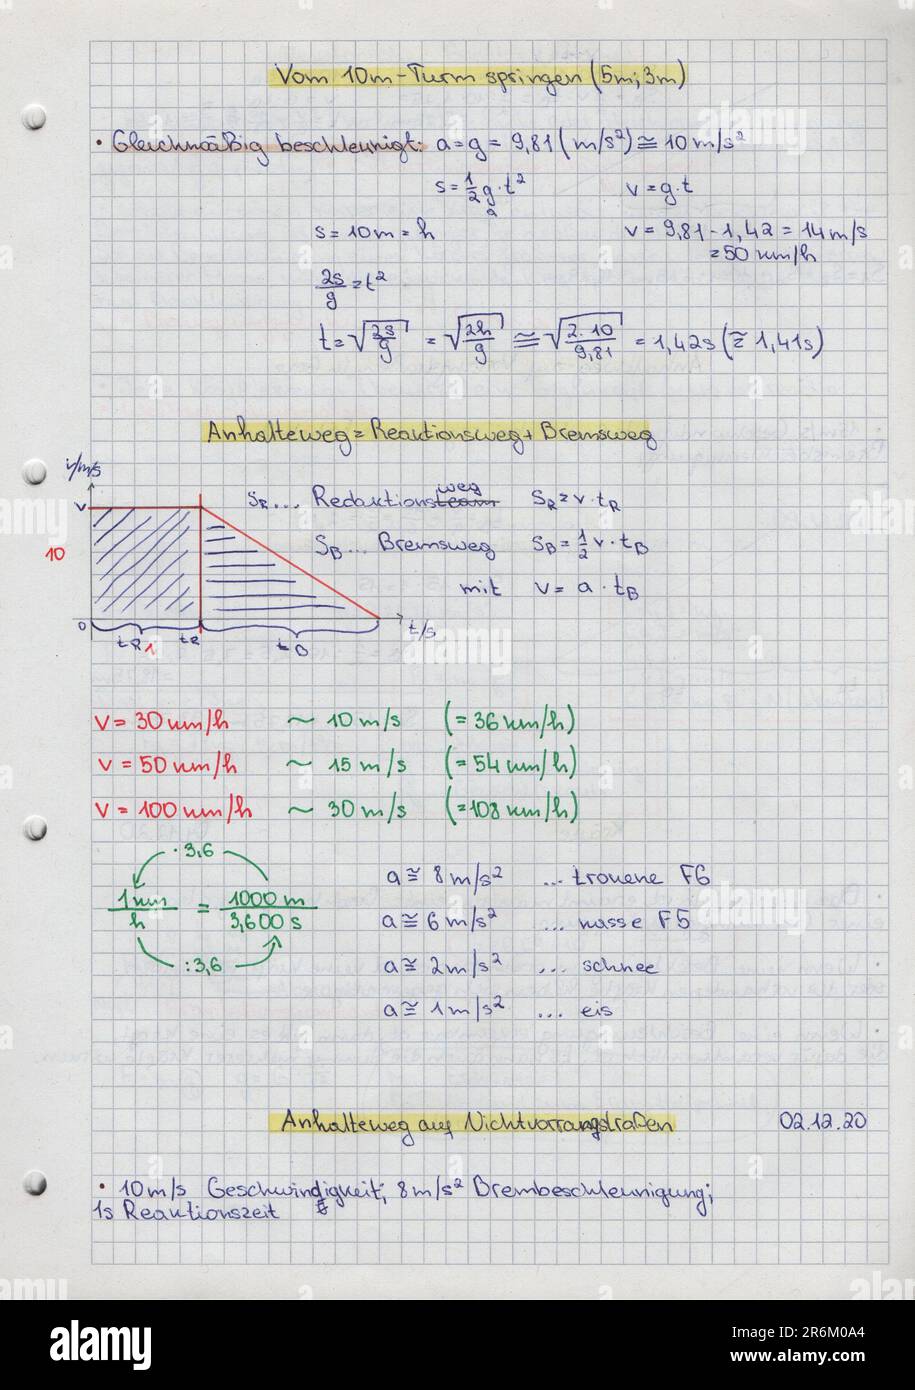 Vom 10m-Turm springen (5m; 3m)
• Gleichmäßig beschleunigt: a = g = 9,81 (m/s²) ≅ 10 m/s²
s = 1/2 g · t² v = g · t
s = 10m = h v = 9,81 · 1,42 = 14 m/s
= 50 km/h
2s/g = t²
t = √(2s/g) = √(2h/g) ≅ √(2·10/9,81) = 1,42s (≅ 1,41s)
Anhalteweg = Reaktionsweg + Bremsweg
v/m/s
v
10
0
tR 1
tR
tB
t/s
SR ... Redaktionsweg SR = v · tR
SB ... Bremsweg SB = 1/2 v · tB
mit v = a · tB
v = 30 km/h ~ 10 m/s (= 36 km/h)
v = 50 km/h ~ 15 m/s (= 54 km/h)
v = 100 km/h ~ 30 m/s (= 108 km/h)
· 3,6
1 km/h = 1000 m/3,600 s
: 3,6
a ≅ 8 m/s² ... trockene F6
a ≅ 6 m/s² ... nasse F5
a ≅ 2 m/s² ... schnee
a ≅ 1 m/s² ... eis
Anhalteweg auf Nichtvorrangstraßen 02.12.20
• 10 m/s Geschwindigkeit; 8 m/s² Brembeschleunigung;
1s Reaktionszeit
alamy
Image ID: 2R6M0A4
www.alamy.com